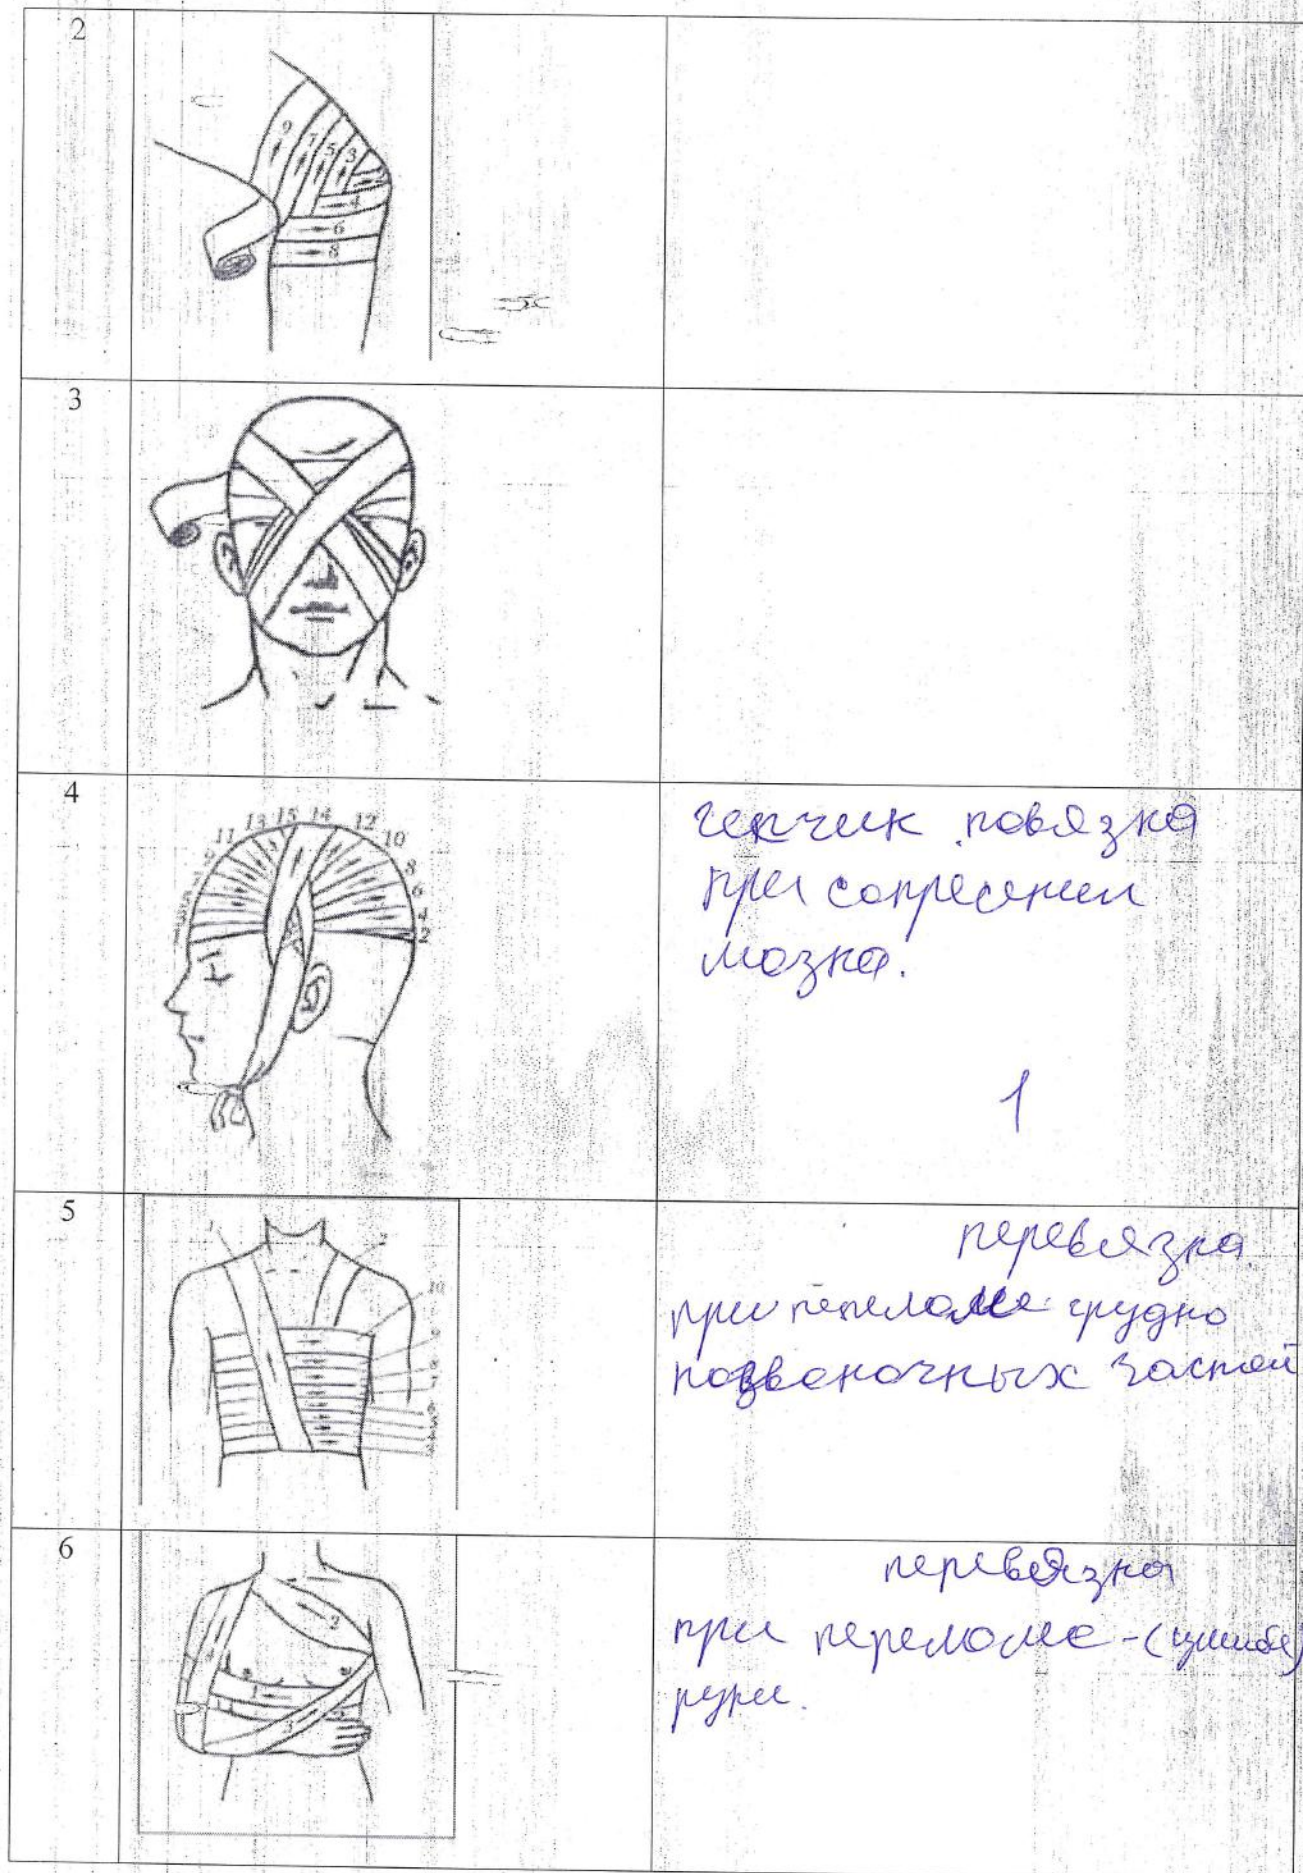 2
9 7 5 3
4
6
8
3
4
11 13 15 14 12
10
8
6
4
2
чепчик повязка
при сотресении
мозка.
1
5
10
перевязка
при пепеломе грудно
позвоночных частей
6
2
1
3
перевязка
при переломе - (ушибе)
руки.